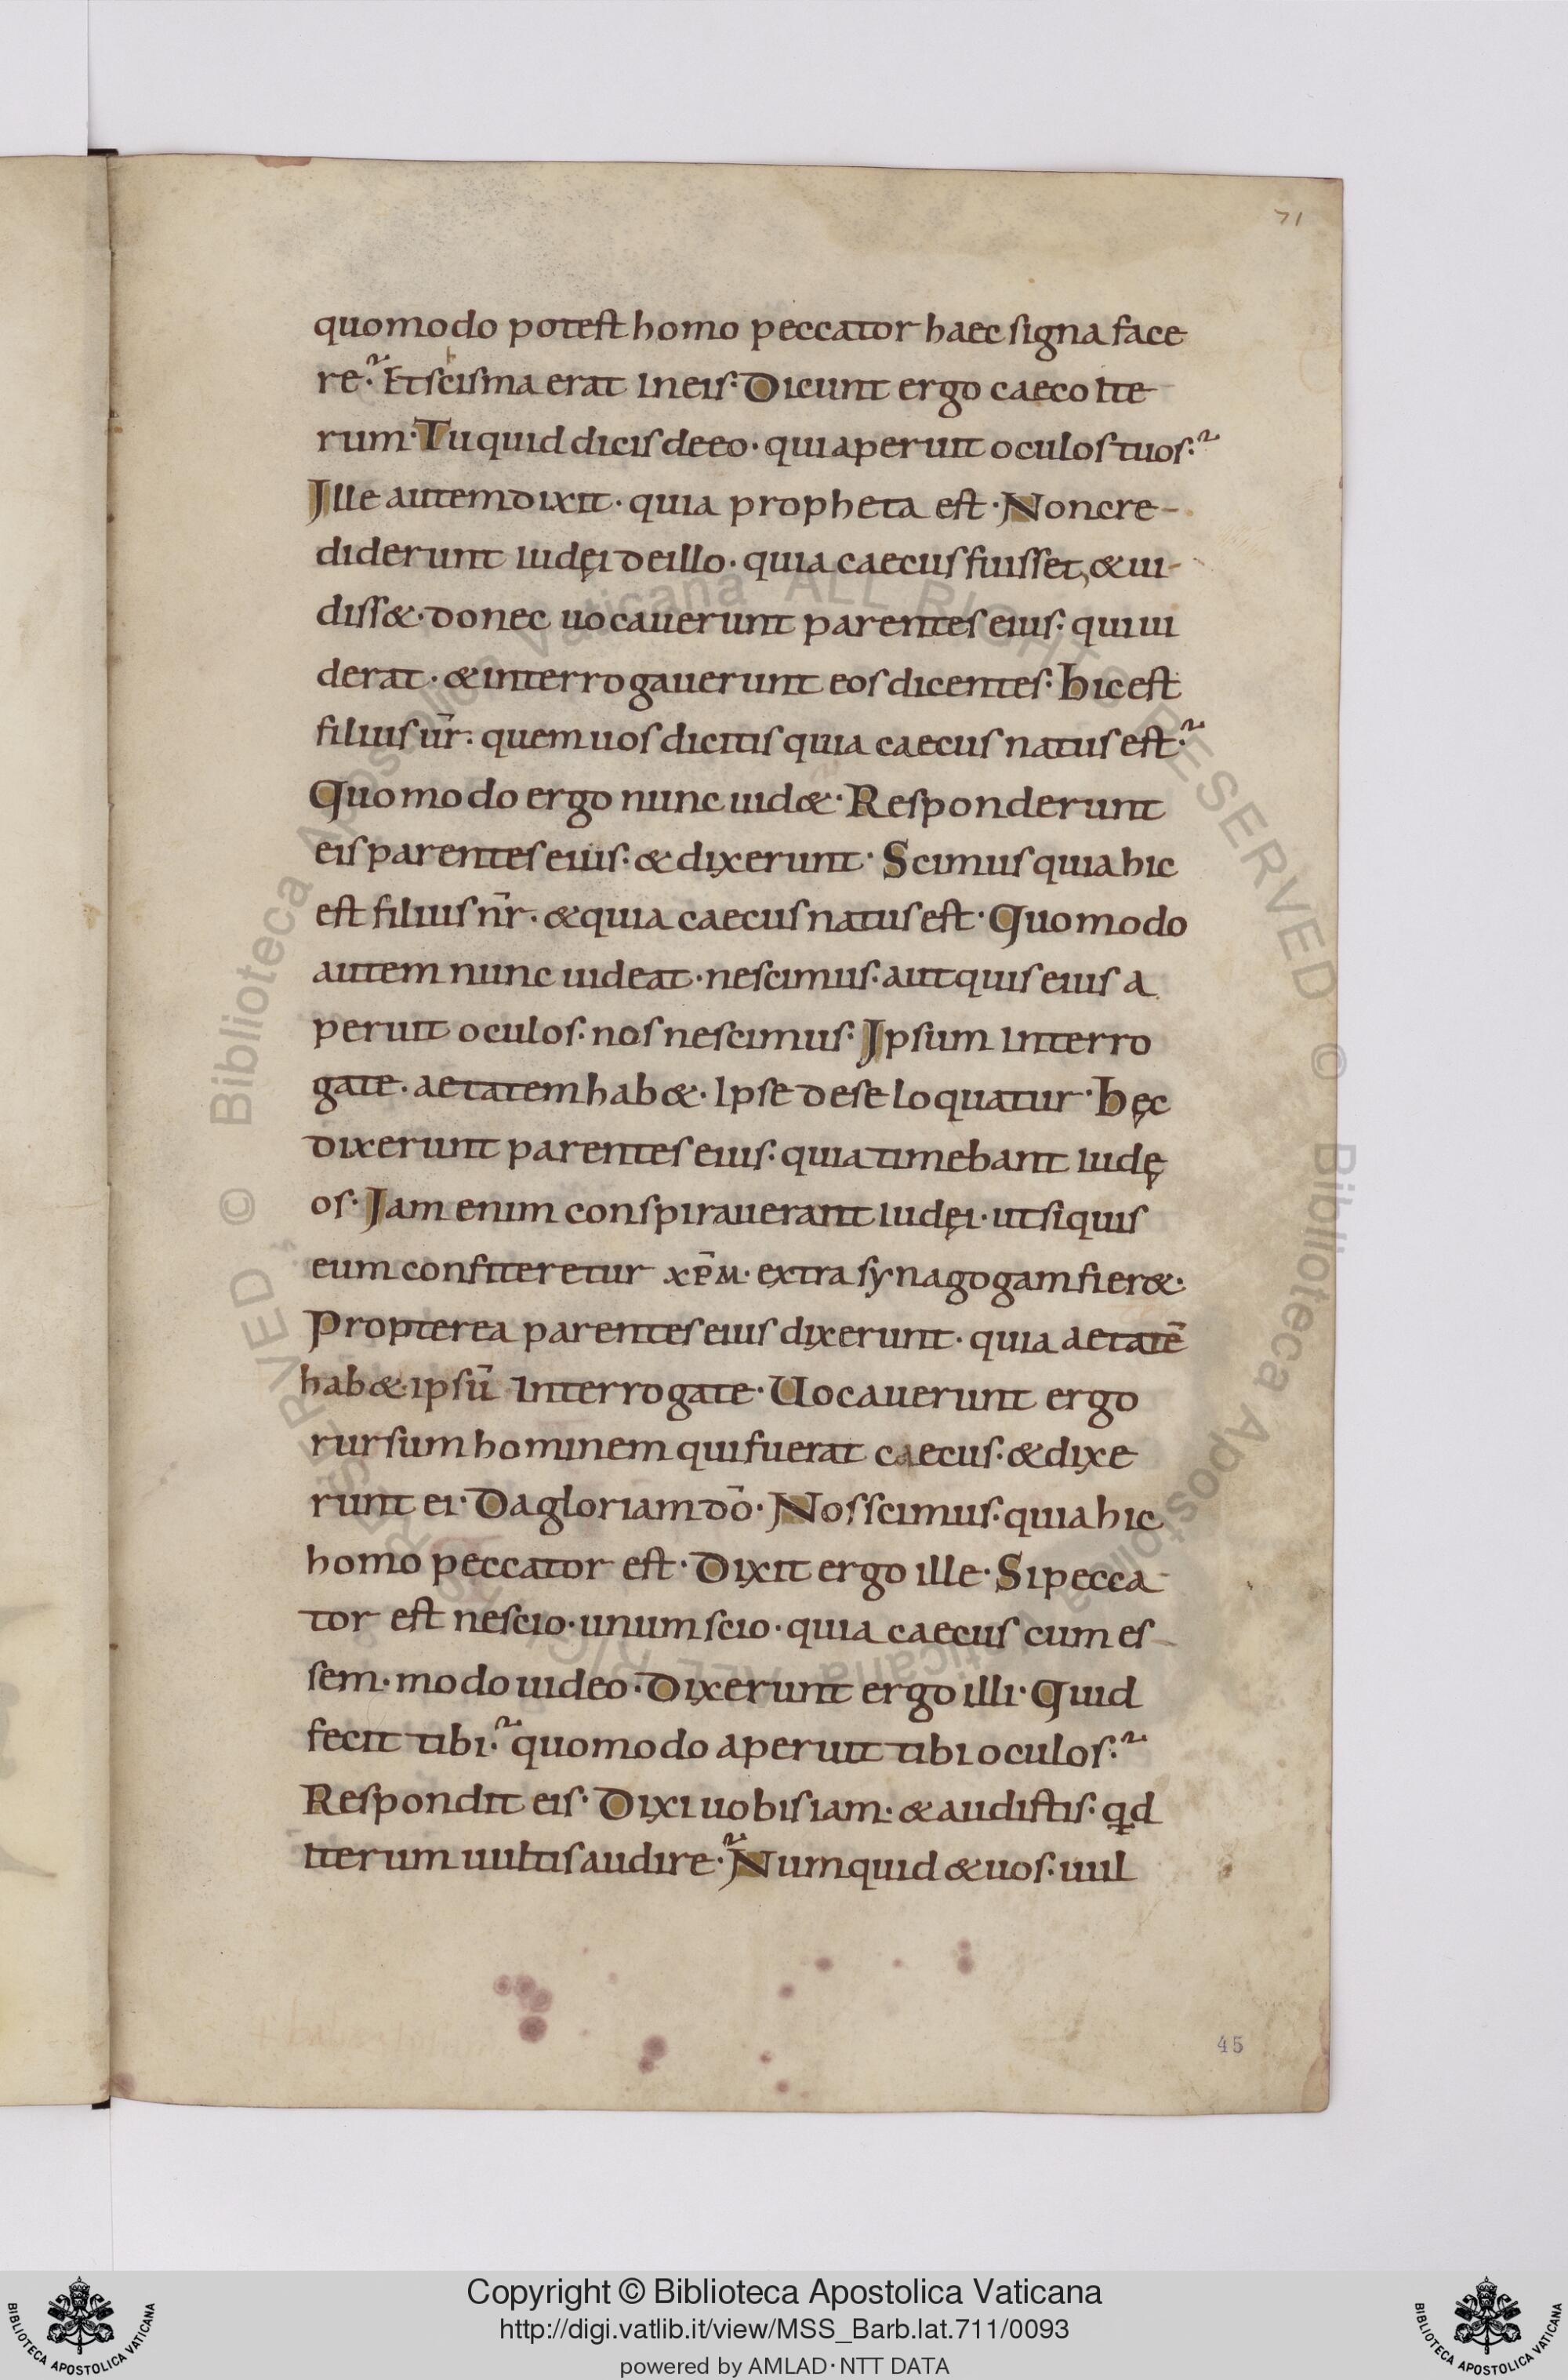 71
quomodo potest homo peccator haec signa face
re? Et schisma erat in eis. Dicunt ergo caeco ite
rum. Tu quid dicis de eo. qui aperuit oculos tuos?
Ille autem dixit. quia propheta est. Non cre-
diderunt iudęi de illo. quia caecus fuisset, & ui-
diss&. donec uocauerunt parentes eius. qui ui
derat. & interrogauerunt eos dicentes. Hic est
filius ur̄. quem uos dicitis quia caecus natus est?
Quomodo ergo nunc uid&. Responderunt
eis parentes eius. & dixerunt. Scimus quia hic
est filius nr̄. & quia caecus natus est. Quomodo
autem nunc uideat. nescimus. aut quis eius a
peruit oculos. nos nescimus. Ipsum interro
gate. aetatem hab&. Ipse de se loquatur. Hęc
dixerunt parentes eius. quia timebant iudę
os. Iam enim conspirauerant iudęi. ut si quis
eum confiteretur xp̄m. extra synagogam fier&.
Propterea parentes eius dixerunt. quia aetatē
hab& ipsū interrogate. Uocauerunt ergo
rursum hominem qui fuerat caecus. & dixe
runt ei. Da gloriam dō. Nos scimus. quia hic
homo peccator est. Dixit ergo ille. Si pecca
tor est nescio. unum scio. quia caecus cum es
sem. modo uideo. Dixerunt ergo illi. Quid
fecit tibi? quomodo aperuit tibi oculos?
Respondit eis. Dixi uobis iam. & audistis. qd
iterum uultis audire? Numquid & uos. uul
45
© Biblioteca Apostolica Vaticana ALL RIGHTS RESERVED
Copyright © Biblioteca Apostolica Vaticana
http://digi.vatlib.it/view/MSS_Barb.lat.711/0093
powered by AMLAD·NTT DATA
BIBLIOTECA APOSTOLICA VATICANA
BIBLIOTECA APOSTOLICA VATICANA